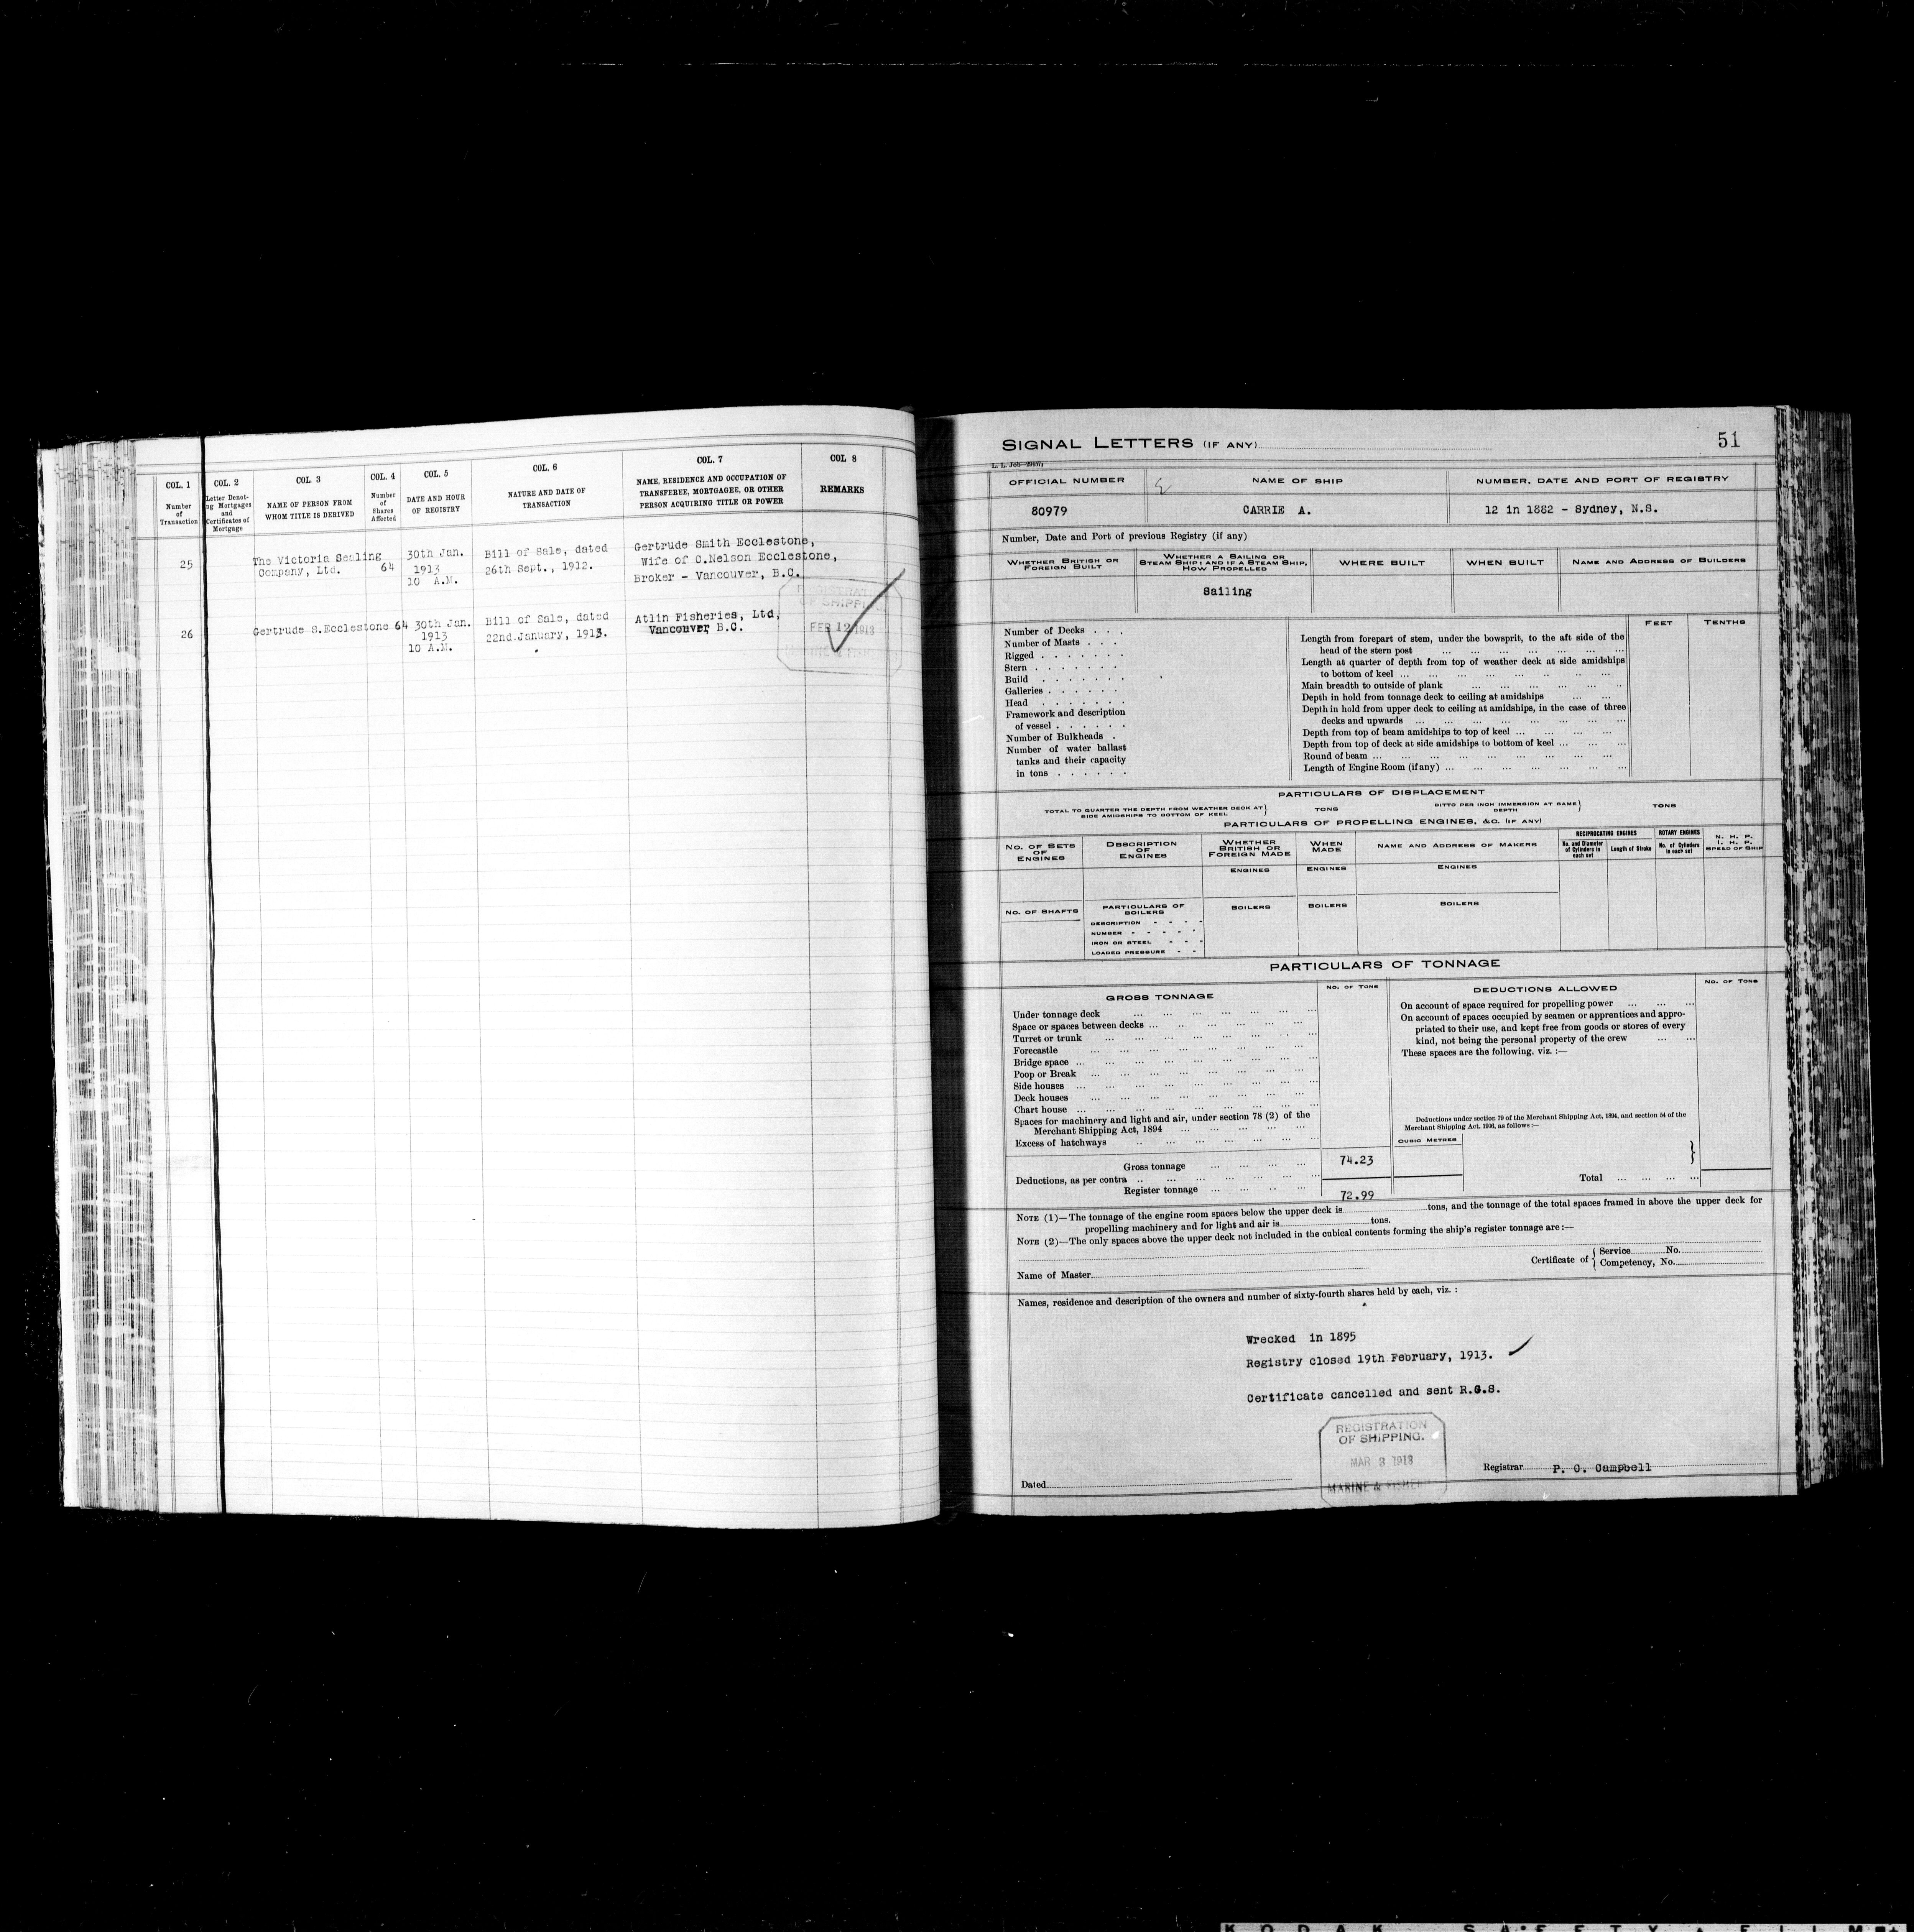 COL. 1
Number
of
Transaction
COL. 2
Letter Denot-
ng Mortgages
and
Certificates of
Mortgage
COL 3
NAME OF PERSON FROM
WHOM TITLE IS DERIVED
COL. 4
Number
of
Shares
Affected
COL. 5
DATE AND HOUR
OF REGISTRY
COL. 6
NATURE AND DATE OF
TRANSACTION
COL. 7
NAME, RESIDENCE AND OCCUPATION OF
TRANSFEREE, MORTGAGEE, OR OTHER
PERSON ACQUIRING TITLE OR POWER
COL 8
REMARKS
25
The Victoria Sealing
Company, Ltd. 64
30th Jan.
1913
10 A.M.
Bill of Sale, dated
26th Sept., 1912.
Gertrude Smith Ecclestone,
Wife of C.Nelson Ecclestone,
Broker - Vancouver, B.C.
26
Gertrude S.Ecclestone 64
30th Jan.
1913
10 A.M.
Bill of Sale, dated
22nd.January, 1913.
Atlin Fisheries, Ltd,
Vancouver, B.C.
OF SHIPPI
FEB 12 1913
SIGNAL LETTERS (IF ANY)
51
L. L. Job
OFFICIAL NUMBER
NAME OF SHIP
NUMBER, DATE AND PORT OF REGISTRY
80979
CARRIE A.
12 in 1882 - Sydney, N.S.
Number, Date and Port of previous Registry (if any)
WHETHER BRITISH OR
FOREIGN BUILT
WHETHER A SAILING OR
STEAM SHIP; AND IF A STEAM SHIP,
HOW PROPELLED
WHERE BUILT
WHEN BUILT
NAME AND ADDRESS OF BUILDERS
Sailing
Number of Decks . . .
Number of Masts . . .
Rigged . . . . . . .
Stern . . . . . . .
Build . . . . . . .
Galleries . . . . . .
Head . . . . . . .
Framework and description
of vessel . . . . . .
Number of Bulkheads .
Number of water ballast
tanks and their capacity
in tons . . . . . .
FEET
TENTHS
Length from forepart of stem, under the bowsprit, to the aft side of the
head of the stern post
Length at quarter of depth from top of weather deck at side amidships
to bottom of keel ...
Main breadth to outside of plank
Depth in hold from tonnage deck to ceiling at amidships
Depth in hold from upper deck to ceiling at amidships, in the case of three
decks and upwards ...
Depth from top of beam amidships to top of keel ...
Depth from top of deck at side amidships to bottom of keel ...
Round of beam ...
Length of Engine Room (if any) ...
PARTICULARS OF DISPLACEMENT
TOTAL TO QUARTER THE DEPTH FROM WEATHER DECK AT
SIDE AMIDSHIPS TO BOTTOM OF KEEL
TONS
DITTO PER INCH IMMERSION AT SAME
DEPTH
TONS
PARTICULARS OF PROPELLING ENGINES, &C. (IF ANY)
NO. OF SETS
OF
ENGINES
DESCRIPTION
OF
ENGINES
WHETHER
BRITISH OR
FOREIGN MADE
WHEN
MADE
NAME AND ADDRESS OF MAKERS
RECIPROCATING ENGINES
No. and Diameter
of Cylinders in
each set
Length of Stroke
ROTARY ENGINES
No. of Cylinders
in each set
N. H. P.
I. H. P.
SPEED OF SHIP
ENGINES
ENGINES
ENGINES
NO. OF SHAFTS
PARTICULARS OF
BOILERS
BOILERS
BOILERS
BOILERS
DESCRIPTION
NUMBER
IRON OR STEEL
LOADED PRESSURE
PARTICULARS OF TONNAGE
GROSS TONNAGE
NO. OF TONS
DEDUCTIONS ALLOWED
NO. OF TONS
Under tonnage deck
Space or spaces between decks ...
Turret or trunk
Forecastle
Bridge space ...
Poop or Break
Side houses
Deck houses
Chart house ...
Spaces for machinery and light and air, under section 78 (2) of the
Merchant Shipping Act, 1894
Excess of hatchways
On account of space required for propelling power
On account of spaces occupied by seamen or apprentices and appro-
priated to their use, and kept free from goods or stores of every
kind, not being the personal property of the crew
These spaces are the following, viz. :—
Deductions under section 79 of the Merchant Shipping Act, 1894, and section 54 of the
Merchant Shipping Act, 1906, as follows :—
CUBIC METRES
Gross tonnage 74.23
Deductions, as per contra
Total
Register tonnage 72.99
NOTE (1)—The tonnage of the engine room spaces below the upper deck is tons, and the tonnage of the total spaces framed in above the upper deck for
propelling machinery and for light and air is tons.
NOTE (2)—The only spaces above the upper deck not included in the cubical contents forming the ship's register tonnage are :—
Name of Master
Certificate of
Service No.
Competency, No.
Names, residence and description of the owners and number of sixty-fourth shares held by each, viz. :
Wrecked in 1895
Registry closed 19th February, 1913.
Certificate cancelled and sent R.G.S.
REGISTRATION
OF SHIPPING.
MAR 3 1913
MARINE & FISHE
Dated
Registrar P. C. Campbell
KODAK SAFETY FILM